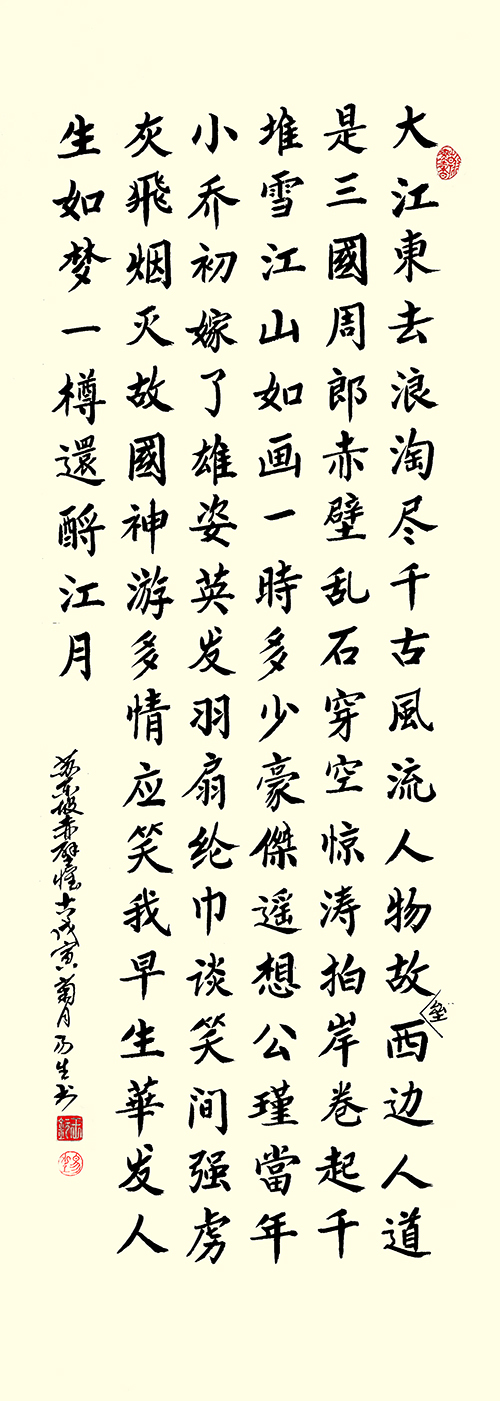 大江東去浪淘尽千古風流人物故垒西边人道
是三國周郎赤壁乱石穿空惊涛拍岸卷起千
堆雪江山如画一時多少豪傑遥想公瑾當年
小乔初嫁了雄姿英发羽扇纶巾谈笑间强虏
灰飛烟灭故國神游多情应笑我早生華发人
生如梦一樽還酹江月
苏东坡赤壁懷古戊寅菊月生书